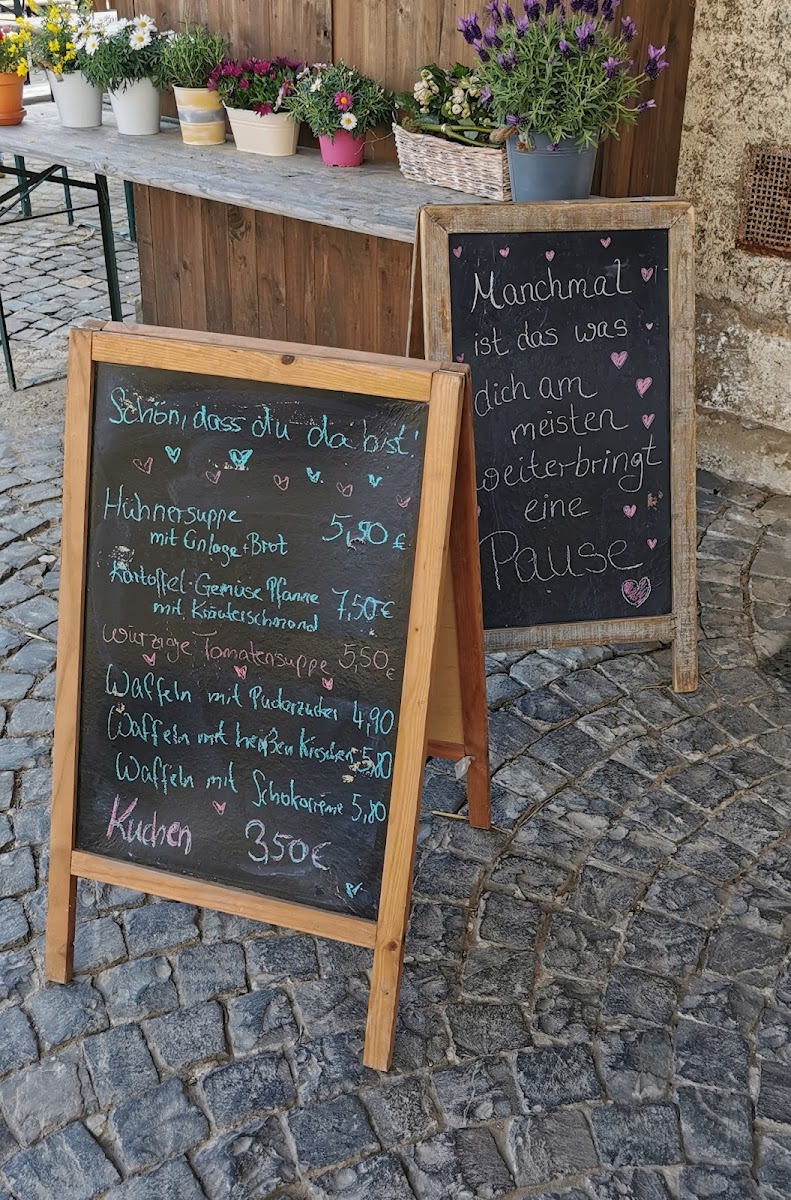 Schön, dass du da bist!
Hühnersuppe 5,90 €
mit Einlage + Brot
Kartoffel-Gemüse Pfanne 7,50 €
mit Kräuterschmand
würzige Tomatensuppe 5,50 €
Waffeln mit Puderzucker 4,90
Waffeln mit heißen Kirschen 5,80
Waffeln mit Schokocrème 5,80
Kuchen 3,50 €
Manchmal
ist das was
dich am
meisten
weiterbringt
eine
Pause